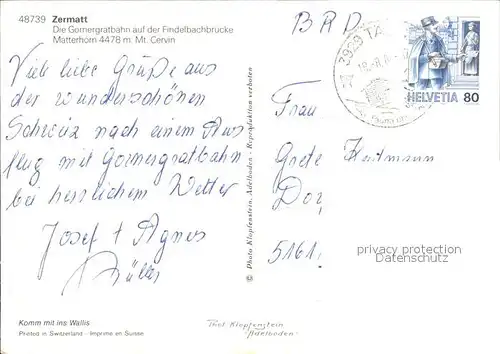 48739 Zermatt
Die Gornergratbahn auf der Findelbachbrücke
Matterhorn 4478 m. Mt. Cervin
Viele liebe Grüße aus
der wunderschönen
Schweiz nach einem Aus
flug mit Gornergratbahn
bei herrlichem Wetter
Josef + Agnes
Müller
Komm mit ins Wallis
Printed in Switzerland - Imprimé en Suisse
© Photo Klopfenstein, Adelboden - Reproduktion verboten
Phot Klopfenstein
Adelboden
BRD
3929 TÄ
HELVETIA 80
Frau
Grete
5161
privacy protection
www.ansichtskarten-center.de